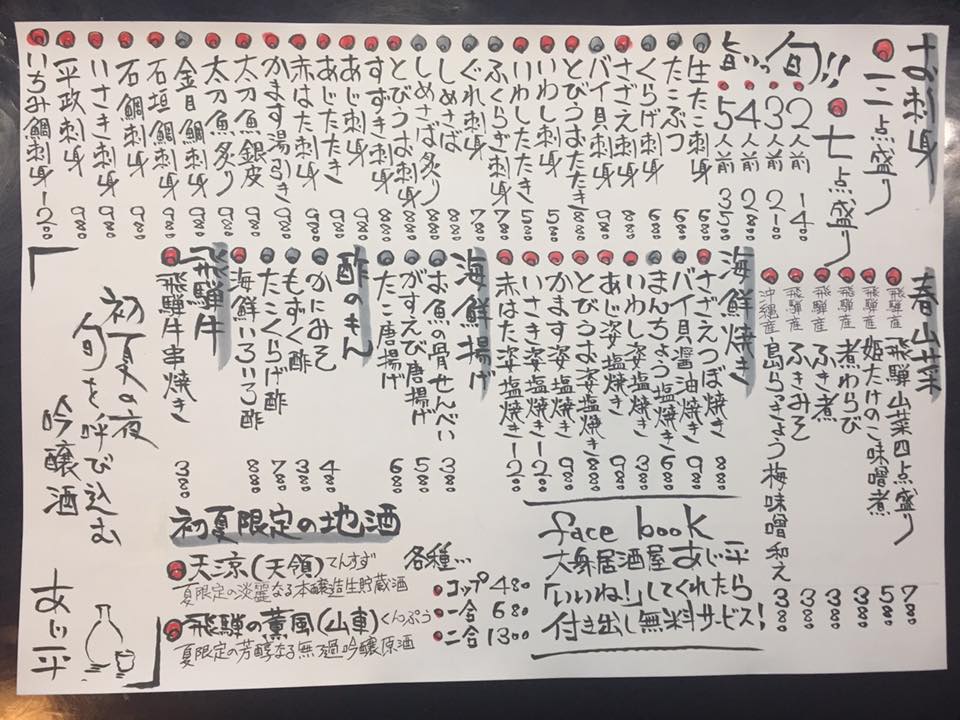 お刺身
三点盛り
七点盛り
旬!!
旨いっ
2人前 1400
3人前 2100
4人前 2800
5人前 3500
生たこ刺身 680
たこぶつ 680
くらげ刺身 680
さざえ刺身 880
バイ貝刺身 980
とびうおたたき 880
いわし刺身 580
いわしたたき 580
ふくらぎ刺身 780
ぐれ刺身 780
しめさば 880
しめさば炙り 880
とびうお刺身 880
すずき刺身 980
あじ刺身 980
あじたたき 980
赤はた刺身 980
かます湯引き 980
太刀魚銀皮 980
太刀魚炙り 980
金目鯛刺身 980
石垣鯛刺身 980
石鯛刺身 980
いさき刺身 980
平政刺身 980
いちみ鯛刺身 1200
春山菜
飛騨産 飛騨山菜四点盛り 780
飛騨産 姫たけのこ味噌煮 580
飛騨産 煮わらび 380
飛騨産 ふき煮 380
飛騨産 ふきみそ 380
沖縄産 島らっきょう梅味噌和え 380
海鮮焼き
さざえつぼ焼き 880
バイ貝醤油焼き 980
まんちょう塩焼き 680
いわし姿塩焼き 380
あじ姿塩焼き 980
とびうお姿塩焼き 880
かます姿塩焼き 980
いさき姿塩焼き 1200
赤はた姿塩焼き 1200
海鮮揚げ
お魚の骨せんべい 380
がすえび唐揚げ 580
たこ唐揚げ 680
酢のもん
かにみそ 480
もずく酢 380
たこくらげ酢 780
海鮮いろいろ酢 880
飛騨牛
飛騨牛串焼き 380
face book
大衆居酒屋 あじ平
「いいね!」してくれたら
付き出し無料サービス!
初夏限定の地酒
天涼(天領)てんすず
夏限定の淡麗なる本醸造生貯蔵酒
飛騨の薫風(山車)くんぷう
夏限定の芳醇なる無ろ過吟醸原酒
各種…
コップ 480
一合 680
二合 1300
「初夏の夜
旬を呼び込む
吟醸酒」
あじ平